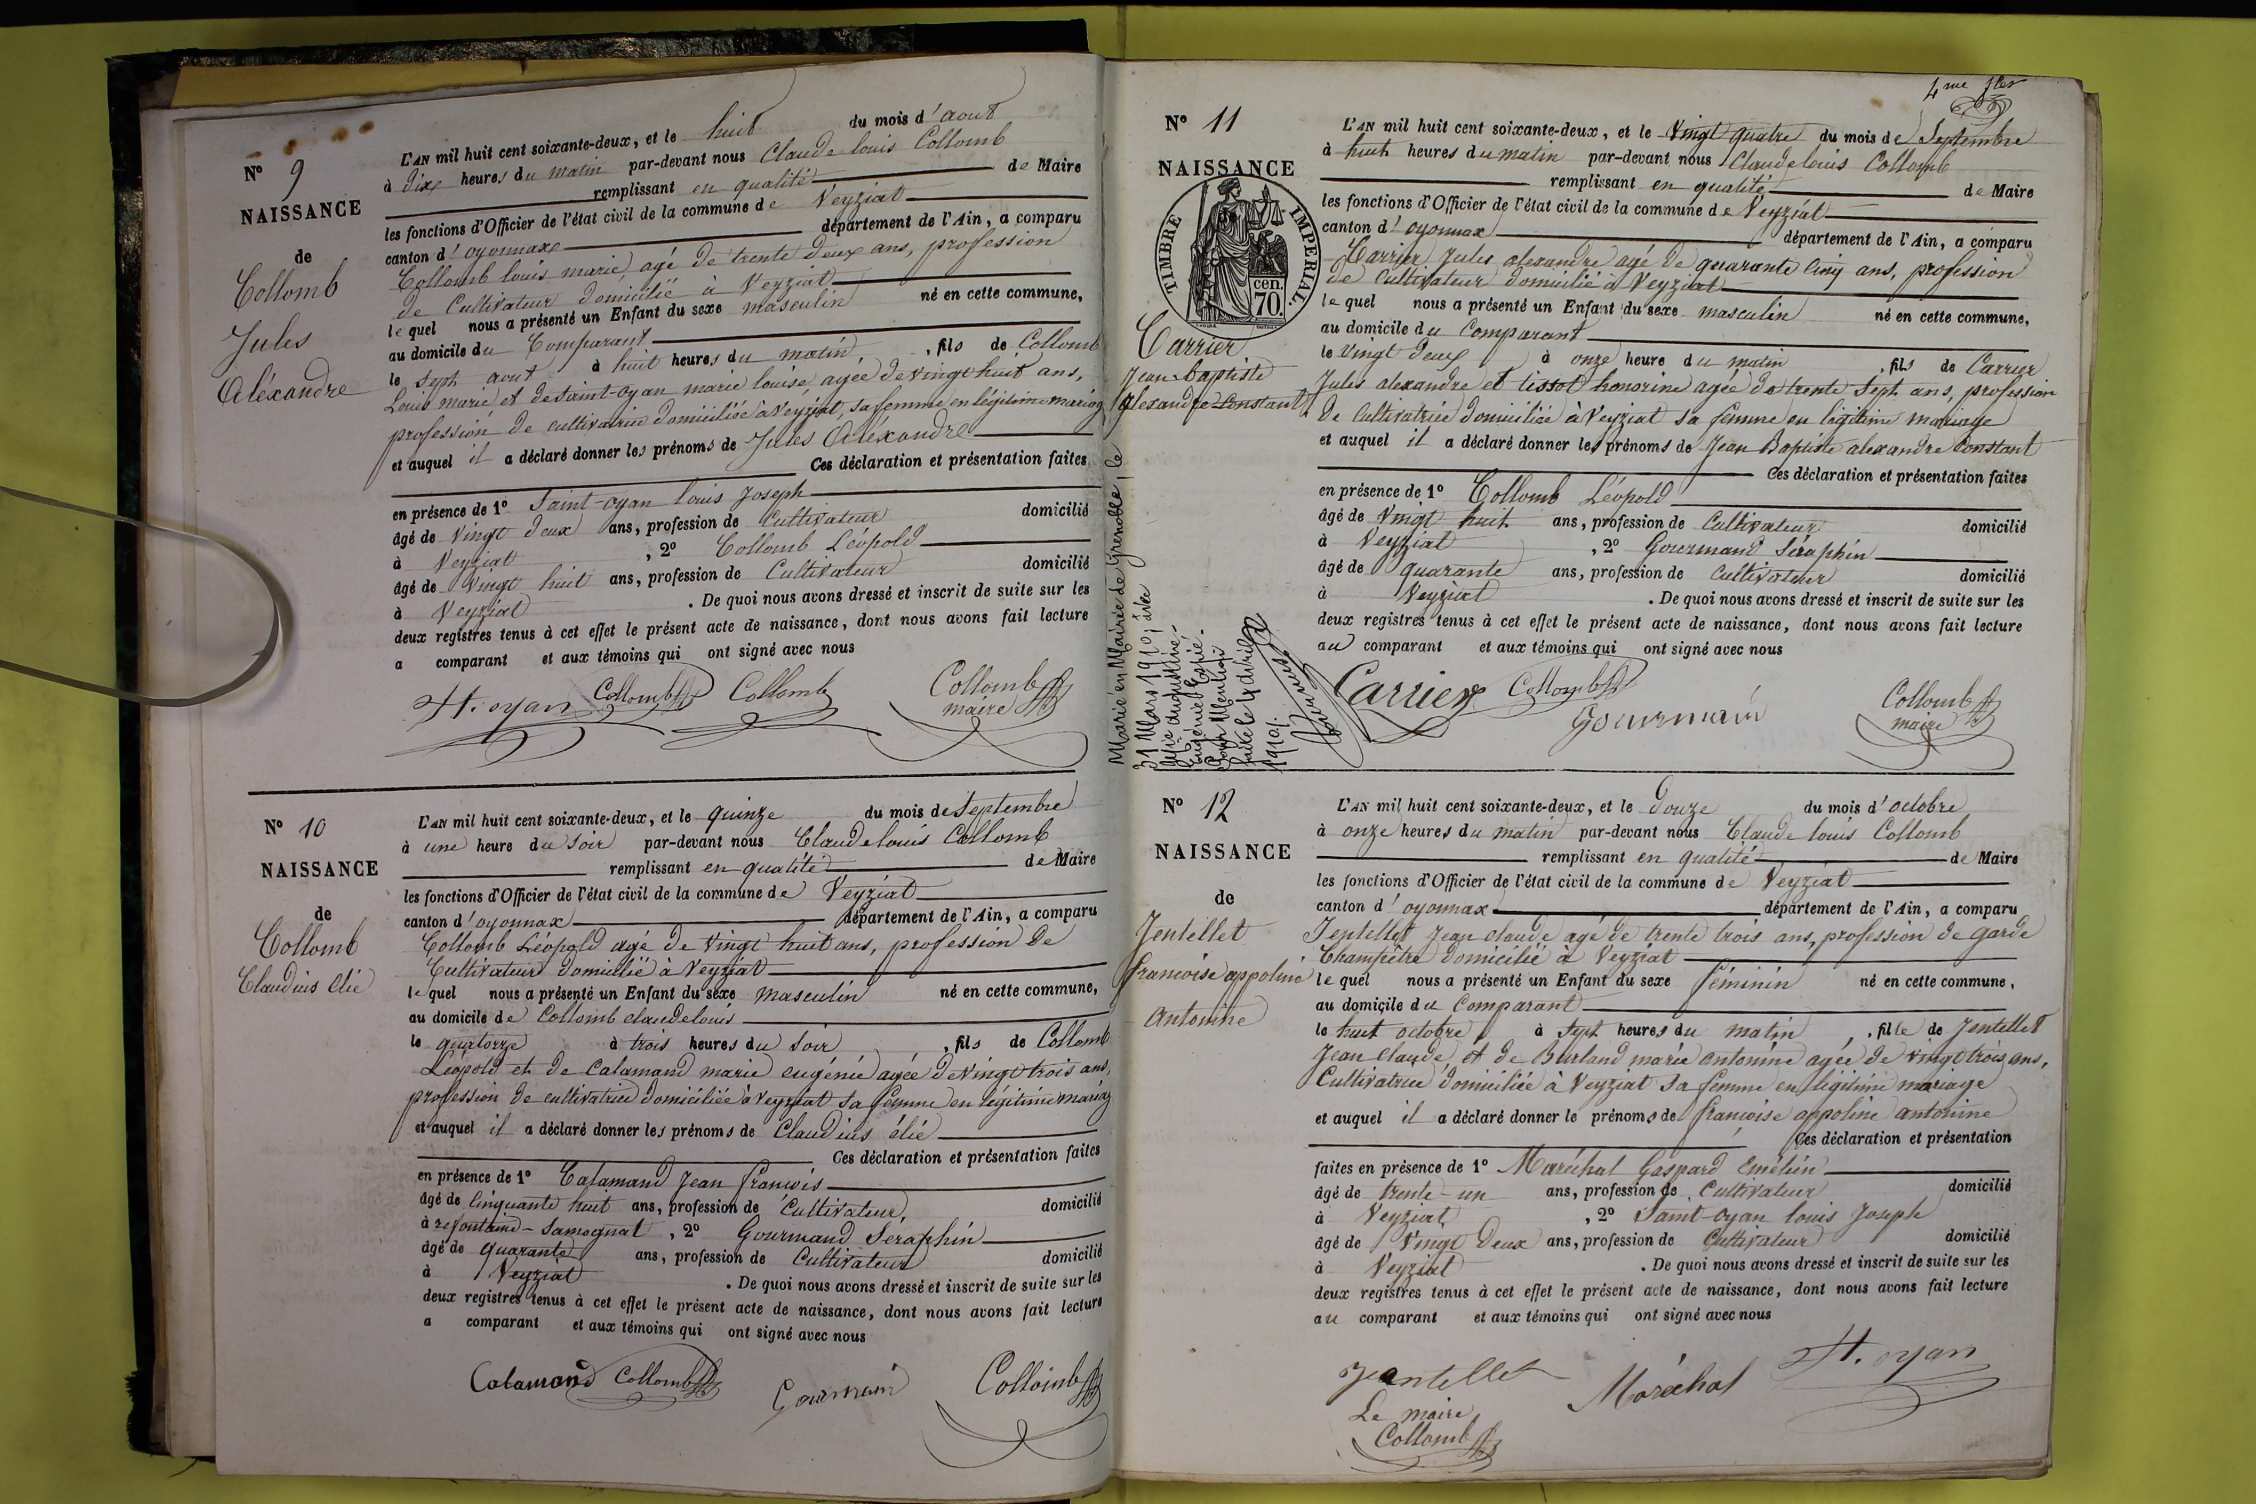 N° 9
NAISSANCE
de
Collomb
Jules
Aléxandre
L'AN mil huit cent soixante-deux, et le huit du mois d'aout
à dix heures du matin par-devant nous Claude louis Collomb
remplissant en qualité de Maire
les fonctions d'Officier de l'état civil de la commune de Veyziat
canton d'oyonnax département de l'Ain, a comparu
Collomb louis marie, agé de trente deux ans, profession
de Cultivateur domicilié à Veyziat
le quel nous a présenté un Enfant du sexe masculin né en cette commune,
au domicile du Comparant
le sept aout à huit heures du matin, fils de Collomb
Louis marie et de saint-oyan marie louise agée de vingt huit ans,
profession de cultivatrice domiciliée à Veyziat, sa femme en légitime mariag
et auquel il a déclaré donner les prénoms de Jules Alexandre
Ces déclaration et présentation faites
en présence de 1° Saint-oyan louis Joseph
âgé de vingt deux ans, profession de Cultivateur domicilié
à Veyziat, 2° Collomb Léopold
âgé de vingt huit ans, profession de Cultivateur domicilié
à Veyziat. De quoi nous avons dressé et inscrit de suite sur les
deux registres tenus à cet effet le présent acte de naissance, dont nous avons fait lecture
a comparant et aux témoins qui ont signé avec nous
St. oyan Collomb Collomb Collomb
maire
N° 10
NAISSANCE
de
Collomb
Claudius élie
L'AN mil huit cent soixante-deux, et le quinze du mois de Septembre
à une heure du soir par-devant nous Claude louis Collomb
remplissant en qualité de Maire
les fonctions d'Officier de l'état civil de la commune de Veyziat
canton d'oyonnax département de l'Ain, a comparu
Collomb Léopold agé de vingt huit ans, profession de
Cultivateur domicilié à Veyziat
le quel nous a présenté un Enfant du sexe masculin né en cette commune,
au domicile de Collomb claude louis
le quatorze à trois heures du soir, fils de Collomb
Léopold et de Calamand marie eugénie agée de vingt trois ans,
profession de cultivatrice domiciliée à Veyziat sa femme en légitime mariag
et auquel il a déclaré donner les prénoms de Claudius élie
Ces déclaration et présentation faites
en présence de 1° Calamand Jean françois
âgé de cinquante huit ans, profession de Cultivateur, domicilié
à refontaine-Samognat, 2° Gourmand Seraphin
âgé de quarante ans, profession de Cultivateur domicilié
à Veyziat. De quoi nous avons dressé et inscrit de suite sur les
deux registres tenus à cet effet le présent acte de naissance, dont nous avons fait lecture
a comparant et aux témoins qui ont signé avec nous
Calamand Collomb Gourmand Collomb
4me fler
N° 11
NAISSANCE
TIMBRE IMPÉRIAL.
cen.
70.
Carrier
Jean-Baptiste
alexandre Constant
Marié en Mairie de Grenoble, le
31 Mars 1910, avec
Eugénie
Pour Mention
faite le 4 avril
1910.
L'AN mil huit cent soixante-deux, et le vingt quatre du mois de Septembre
à huit heures du matin par-devant nous Claude louis Collomb
remplissant en qualité de Maire
les fonctions d'Officier de l'état civil de la commune de Veyziat
canton d'oyonnax département de l'Ain, a comparu
Carrier Jules alexandre agé de quarante cinq ans, profession
de Cultivateur domicilié à Veyziat
le quel nous a présenté un Enfant du sexe masculin né en cette commune,
au domicile du Comparant
le vingt deux à onze heure du matin, fils de Carrier
Jules alexandre et tissot honorine agée de trente sept ans, profession
de Cultivatrice domiciliée à Veyziat sa femme en légitime mariage
et auquel il a déclaré donner les prénoms de Jean Baptiste alexandre Constant
Ces déclaration et présentation faites
en présence de 1° Collomb Léopold
âgé de vingt huit ans, profession de Cultivateur domicilié
à Veyziat, 2° Gourmand Séraphin
âgé de quarante ans, profession de Cultivateur domicilié
à Veyziat. De quoi nous avons dressé et inscrit de suite sur les
deux registres tenus à cet effet le présent acte de naissance, dont nous avons fait lecture
au comparant et aux témoins qui ont signé avec nous
Carrier Collomb Gourmand Collomb
maire
N° 12
NAISSANCE
de
Jentellet
francoise appoline
Antonine
L'AN mil huit cent soixante-deux, et le douze du mois d'octobre
à onze heures du matin par-devant nous Claude louis Collomb
remplissant en qualité de Maire
les fonctions d'Officier de l'état civil de la commune de Veyziat
canton d'oyonnax département de l'Ain, a comparu
Jentellet Jean claude agé de trente trois ans, profession de garde
Champêtre domicilié à Veyziat
le quel nous a présenté un Enfant du sexe féminin né en cette commune,
au domicile du Comparant
le huit octobre à sept heures du matin, fille de Jentellet
Jean Claude et de Burland marie antonine agée de vingt trois ans,
Cultivatrice domiciliée à Veyziat sa femme en légitime mariage
et auquel il a déclaré donner le prénoms de francoise appoline antonine
Ces déclaration et présentation
faites en présence de 1° Maréchal Gaspard Emélien
âgé de trente-un ans, profession de Cultivateur domicilié
à Veyziat, 2° Saint-oyan louis Joseph
âgé de vingt deux ans, profession de Cultivateur domicilié
à Veyziat. De quoi nous avons dressé et inscrit de suite sur les
deux registres tenus à cet effet le présent acte de naissance, dont nous avons fait lecture
au comparant et aux témoins qui ont signé avec nous
Jeantellet Maréchal St. oyan
Le maire
Collomb